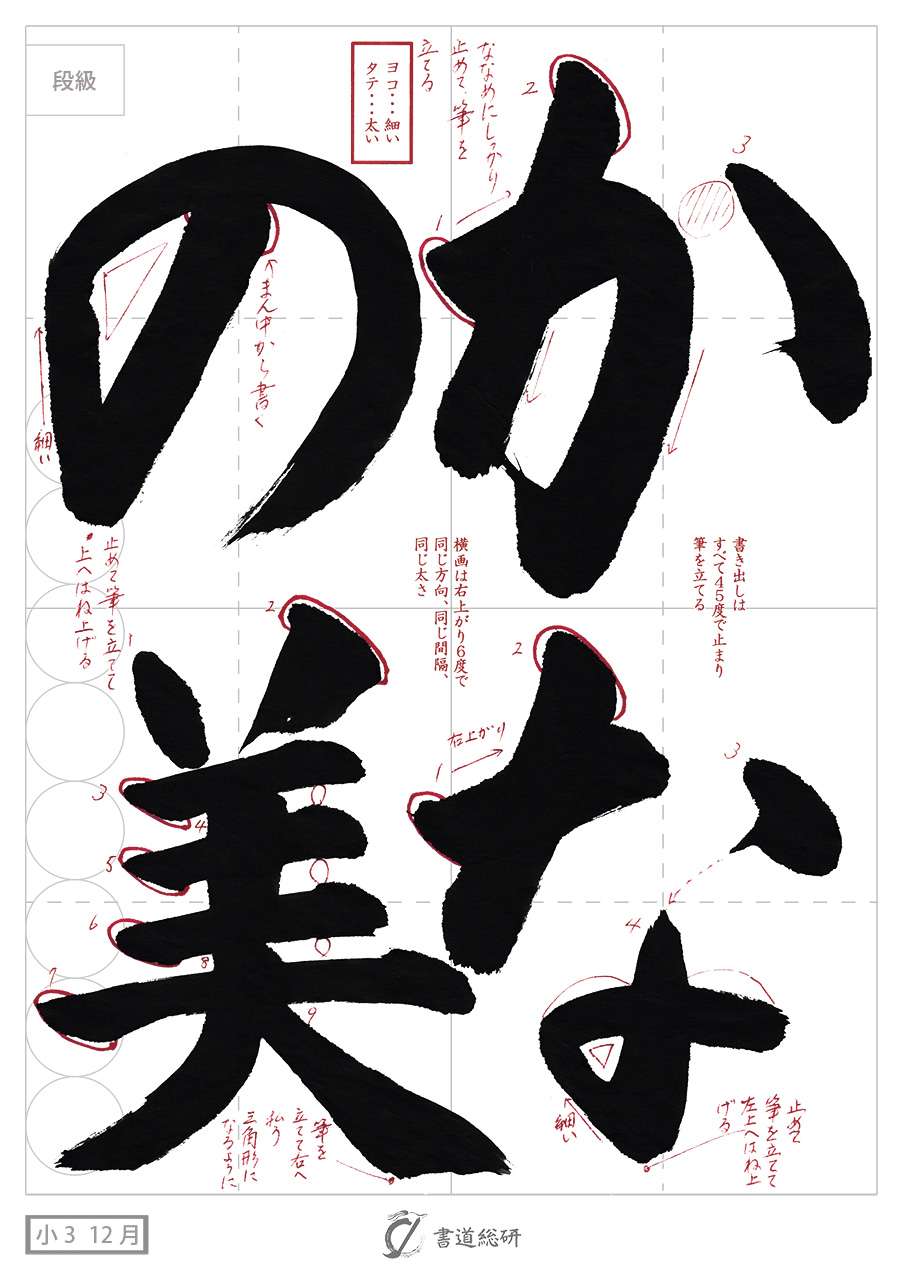 かな
の美
段級
ヨコ・・・細い
タテ・・・太い
ななめにしっかり
止めて、筆を
立てる
1
2
3
まん中から書く
細い
止めて筆を立てて
上へはね上げる
書き出しは
すべて45度で止まり
筆を立てる
横画は右上がり6度で
同じ方向、同じ間隔、
同じ太さ
右上がり
1
2
3
4
細い
止めて
筆を立てて
左上へはね上
げる
1
2
3
4
5
6
7
8
9
筆を
立てて右へ
払う
三角形に
なるように
小3 12月
書道総研